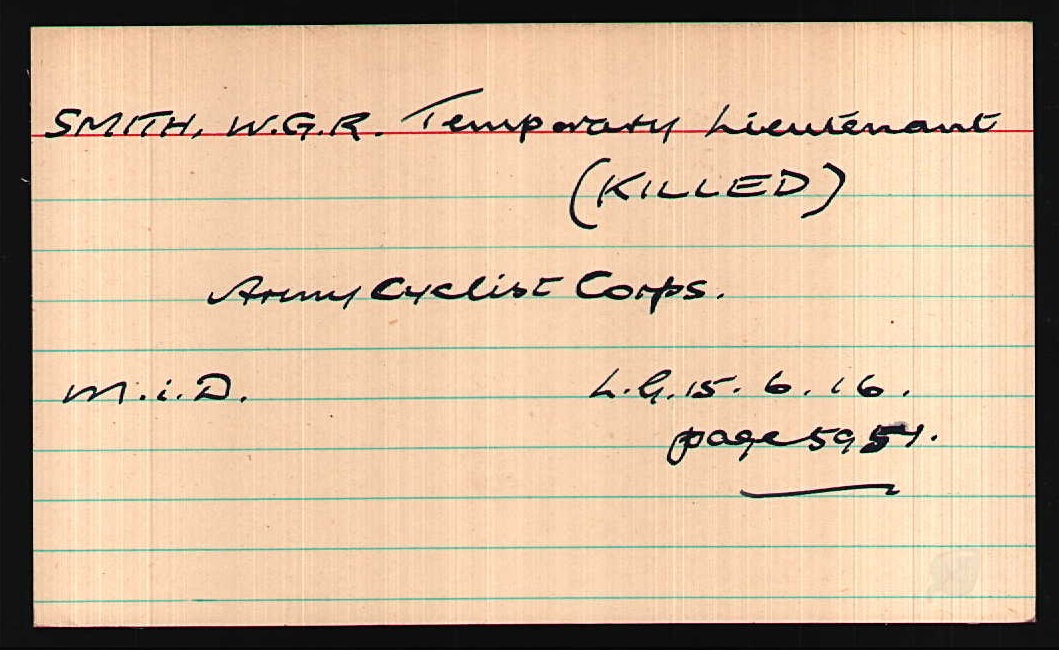 SMITH, W.G.R. Temporary Lieutenant
(KILLED)
Army Cyclist Corps.
M.i.D. L.G. 15. 6. 16.
page 5954.